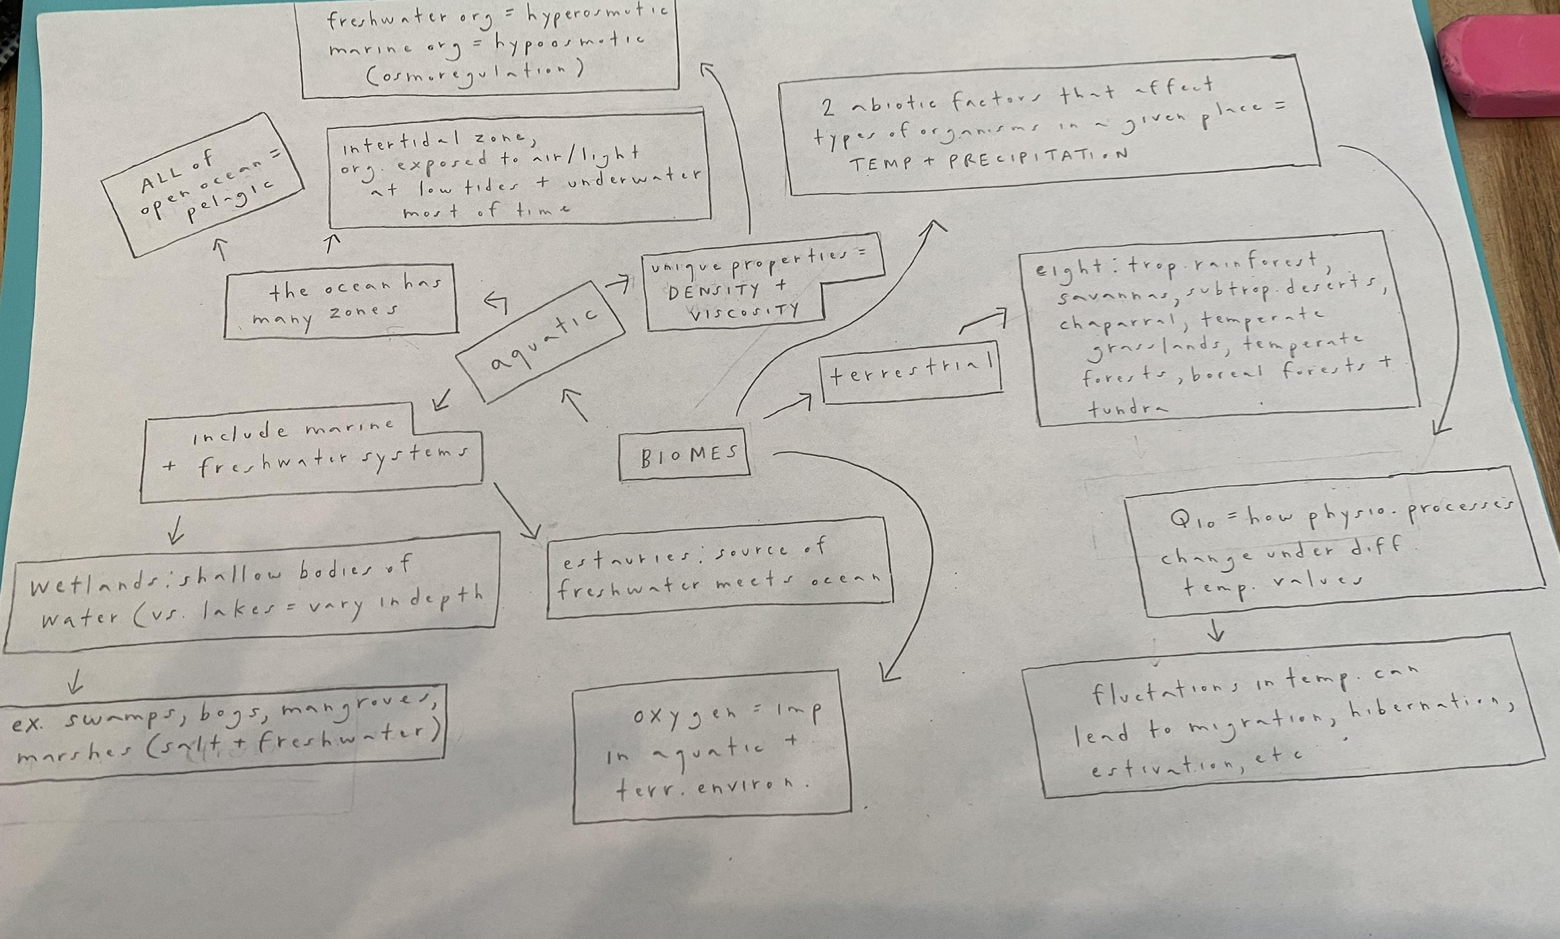 freshwater org = hyperosmotic
marine org = hypoosmotic
(osmoregulation)
ALL of
open ocean =
pelagic
intertidal zone,
org. exposed to air/light
at low tides + underwater
most of time
2 abiotic factors that affect
types of organisms in a given place =
TEMP + PRECIPITATION
the ocean has
many zones
aquatic
unique properties =
DENSITY +
VISCOSITY
terrestrial
eight: trop. rainforest,
savannas, subtrop. deserts,
chaparral, temperate
grasslands, temperate
forests, boreal forests +
tundra
include marine
+ freshwater systems
BIOMES
Q10 = how physio. processes
change under diff.
temp. values
wetlands: shallow bodies of
water (vs. lakes = vary in depth
estauries: source of
freshwater meets ocean
ex. swamps, bogs, mangroves,
marshes (salt + freshwater)
oxygen = imp
in aquatic +
terr. environ.
fluctations in temp. can
lend to migration, hibernation,
estivation, etc